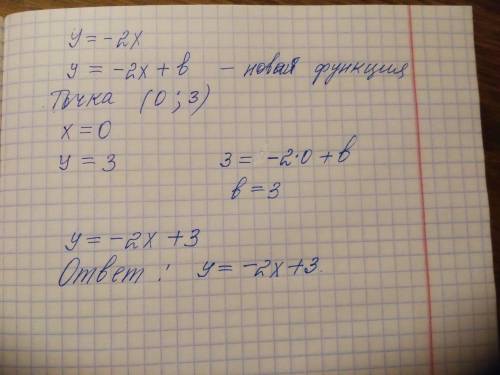 y = -2x
y = -2x + b - новая функция
Точка (0; 3)
x = 0
y = 3
3 = -2·0 + b
b = 3
y = -2x + 3
Ответ: y = -2x + 3.